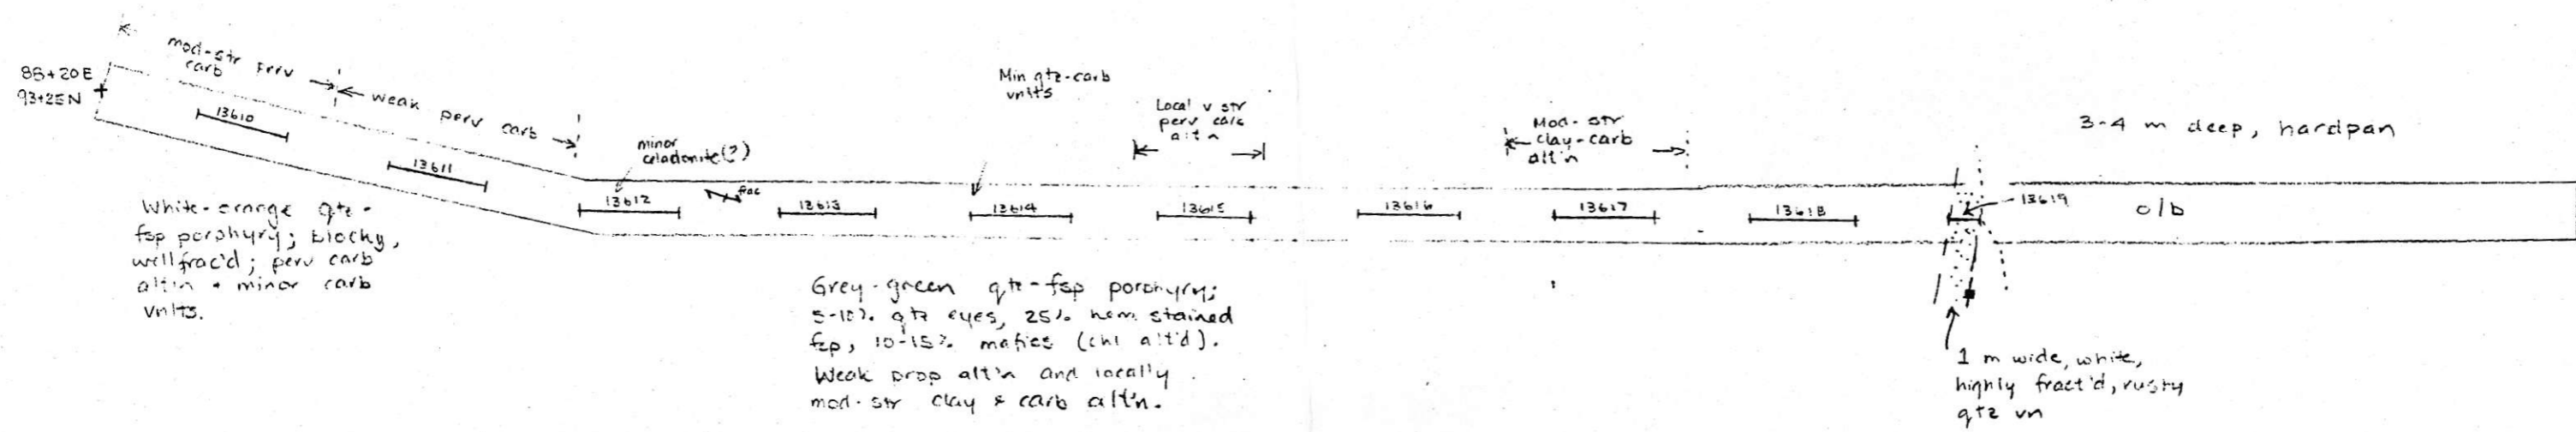 88+20E
93+25N
mod-str perv
carb
weak perv carb
13610
13611
White-orange qtz-
fsp porphyry; blocky,
well frac'd; perv carb
alt'n + minor carb
vnlts.
minor
celadonite(?)
13612
frac
13613
Min qtz-carb
vnlts
13614
Local v str
perv calc
alt'n
13615
13616
Mod-str
clay-carb
alt'n
13617
13618
13619
3-4 m deep, hardpan
o/b
Grey-green qtz-fsp porphyry;
5-10% qtz eyes, 25% hem stained
fsp, 10-15% mafics (chl alt'd).
Weak prop alt'n and locally
mod-str clay & carb alt'n.
1 m wide, white,
highly fract'd, rusty
qtz vn